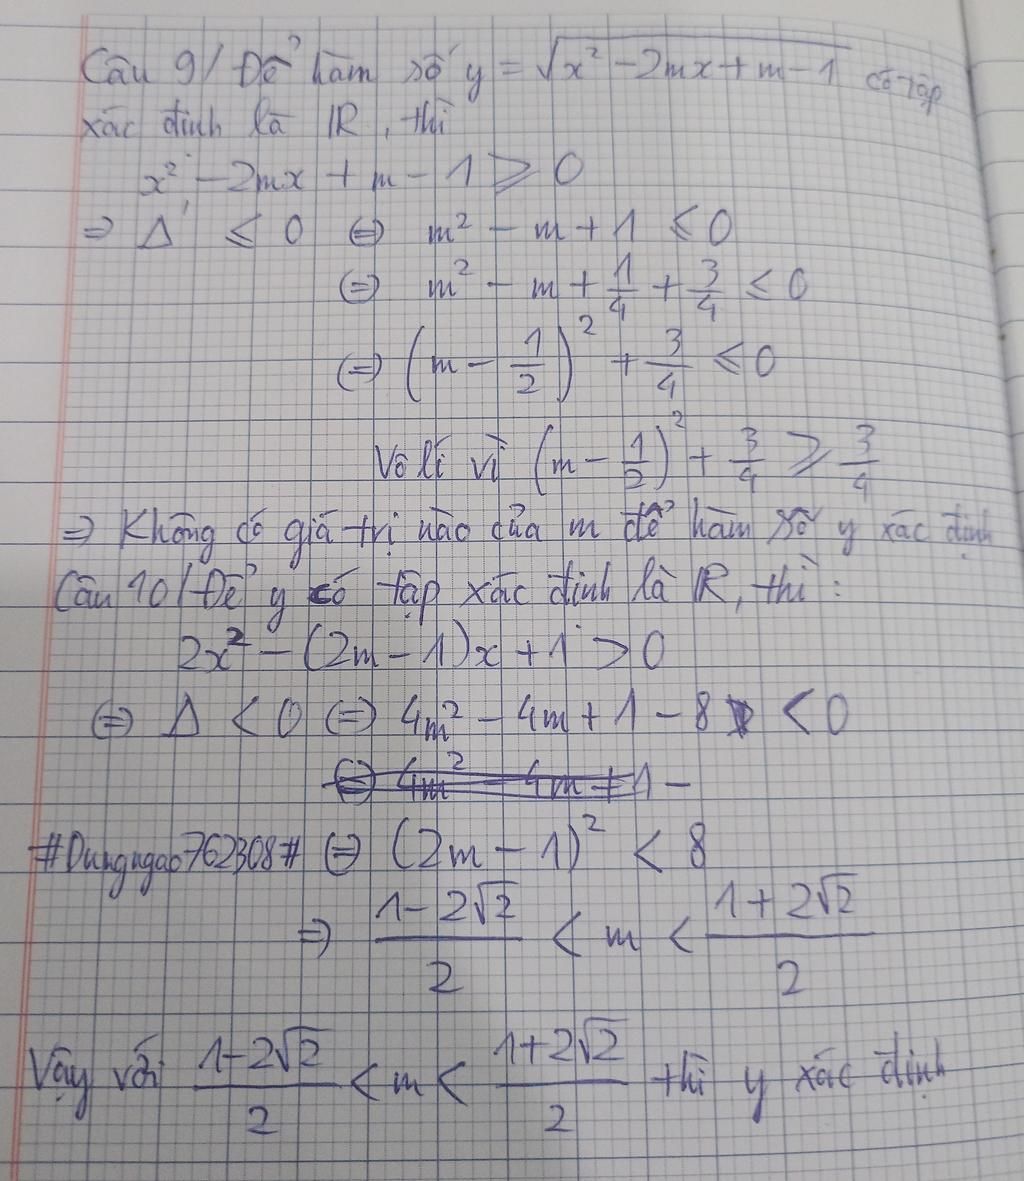 Câu 9/ Để hàm số y = √(x² - 2mx + m - 1) có tập
xác định là R, thì
x² - 2mx + m - 1 ⩾ 0
⇒ Δ' ⩽ 0 ⇔ m² - m + 1 ⩽ 0
⇔ m² - m + 1/4 + 3/4 ⩽ 0
⇔ (m - 1/2)² + 3/4 ⩽ 0
Vô lí vì (m - 1/2)² + 3/4 ⩾ 3/4
⇒ Không có giá trị nào của m để hàm số y xác định
Câu 10/ Để y có tập xác định là R, thì:
2x² - (2m - 1)x + 1 > 0
⇔ Δ < 0 ⇔ 4m² - 4m + 1 - 8 < 0
⇔ 4m² - 4m + 1 -
#Dungngao762308# ⇔ (2m - 1)² < 8
⇒ (1 - 2√2)/2 < m < (1 + 2√2)/2
Vậy với (1 - 2√2)/2 < m < (1 + 2√2)/2 thì y xác định